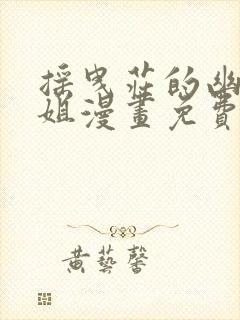 採曳莊的幽
姐漫畫免費
黃藝馨